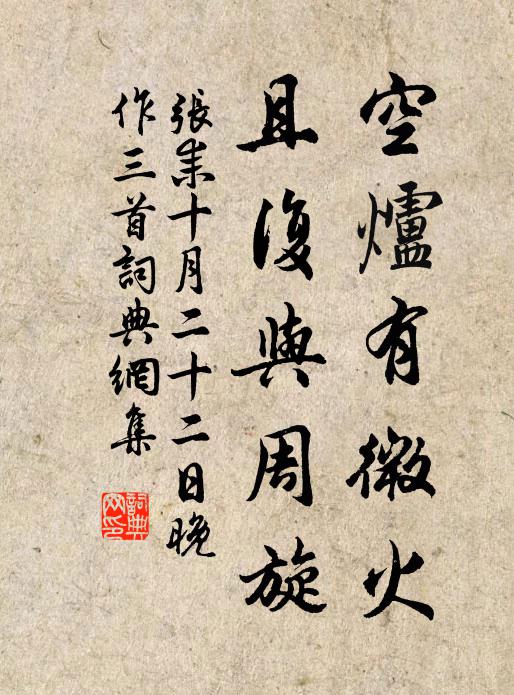 空爐有微火
且復與周旋
張耒十月二十二日晚
作三首詞典網集
詞典
网印